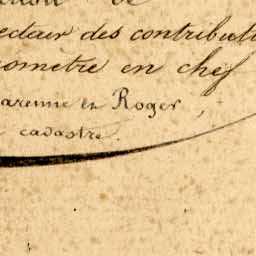 de
des contributi
ometre en chef
arenne en Roger,
cadastre.